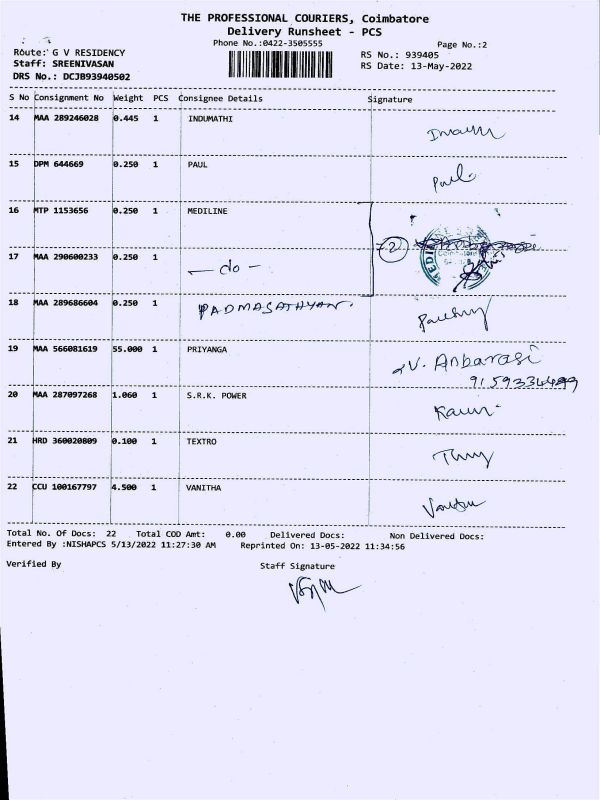 THE PROFESSIONAL COURIERS, Coimbatore
Delivery Runsheet - PCS
Phone No.:0422-3505555
Page No.:2
Route: G V RESIDENCY
RS No.: 939405
Staff: SREENIVASAN
RS Date: 13-May-2022
DRS No.: DCJB93940502
S No Consignment No Weight PCS Consignee Details Signature
14 MAA 289246028 0.445 1 INDUMATHI
15 DPM 644669 0.250 1 PAUL Paul
16 MTP 1153656 0.250 1 MEDILINE
17 MAA 290600233 0.250 1 — do — 2
18 MAA 289686604 0.250 1 PADMASATHYAN.
19 MAA 566081619 55.000 1 PRIYANGA V. Anbarasi
20 MAA 287097268 1.060 1 S.R.K. POWER
21 HRD 360020809 0.100 1 TEXTRO
22 CCU 100167797 4.500 1 VANITHA
Total No. Of Docs: 22 Total COD Amt: 0.00 Delivered Docs: Non Delivered Docs:
Entered By :NISHAPCS 5/13/2022 11:27:30 AM Reprinted On: 13-05-2022 11:34:56
Verified By Staff Signature